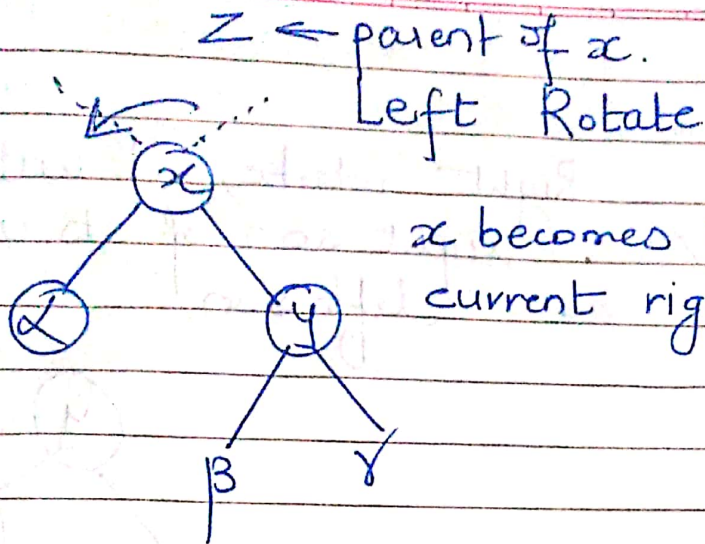 Z ← parent of x.
Left Rotate
x
x becomes
current rig
α y
β γ